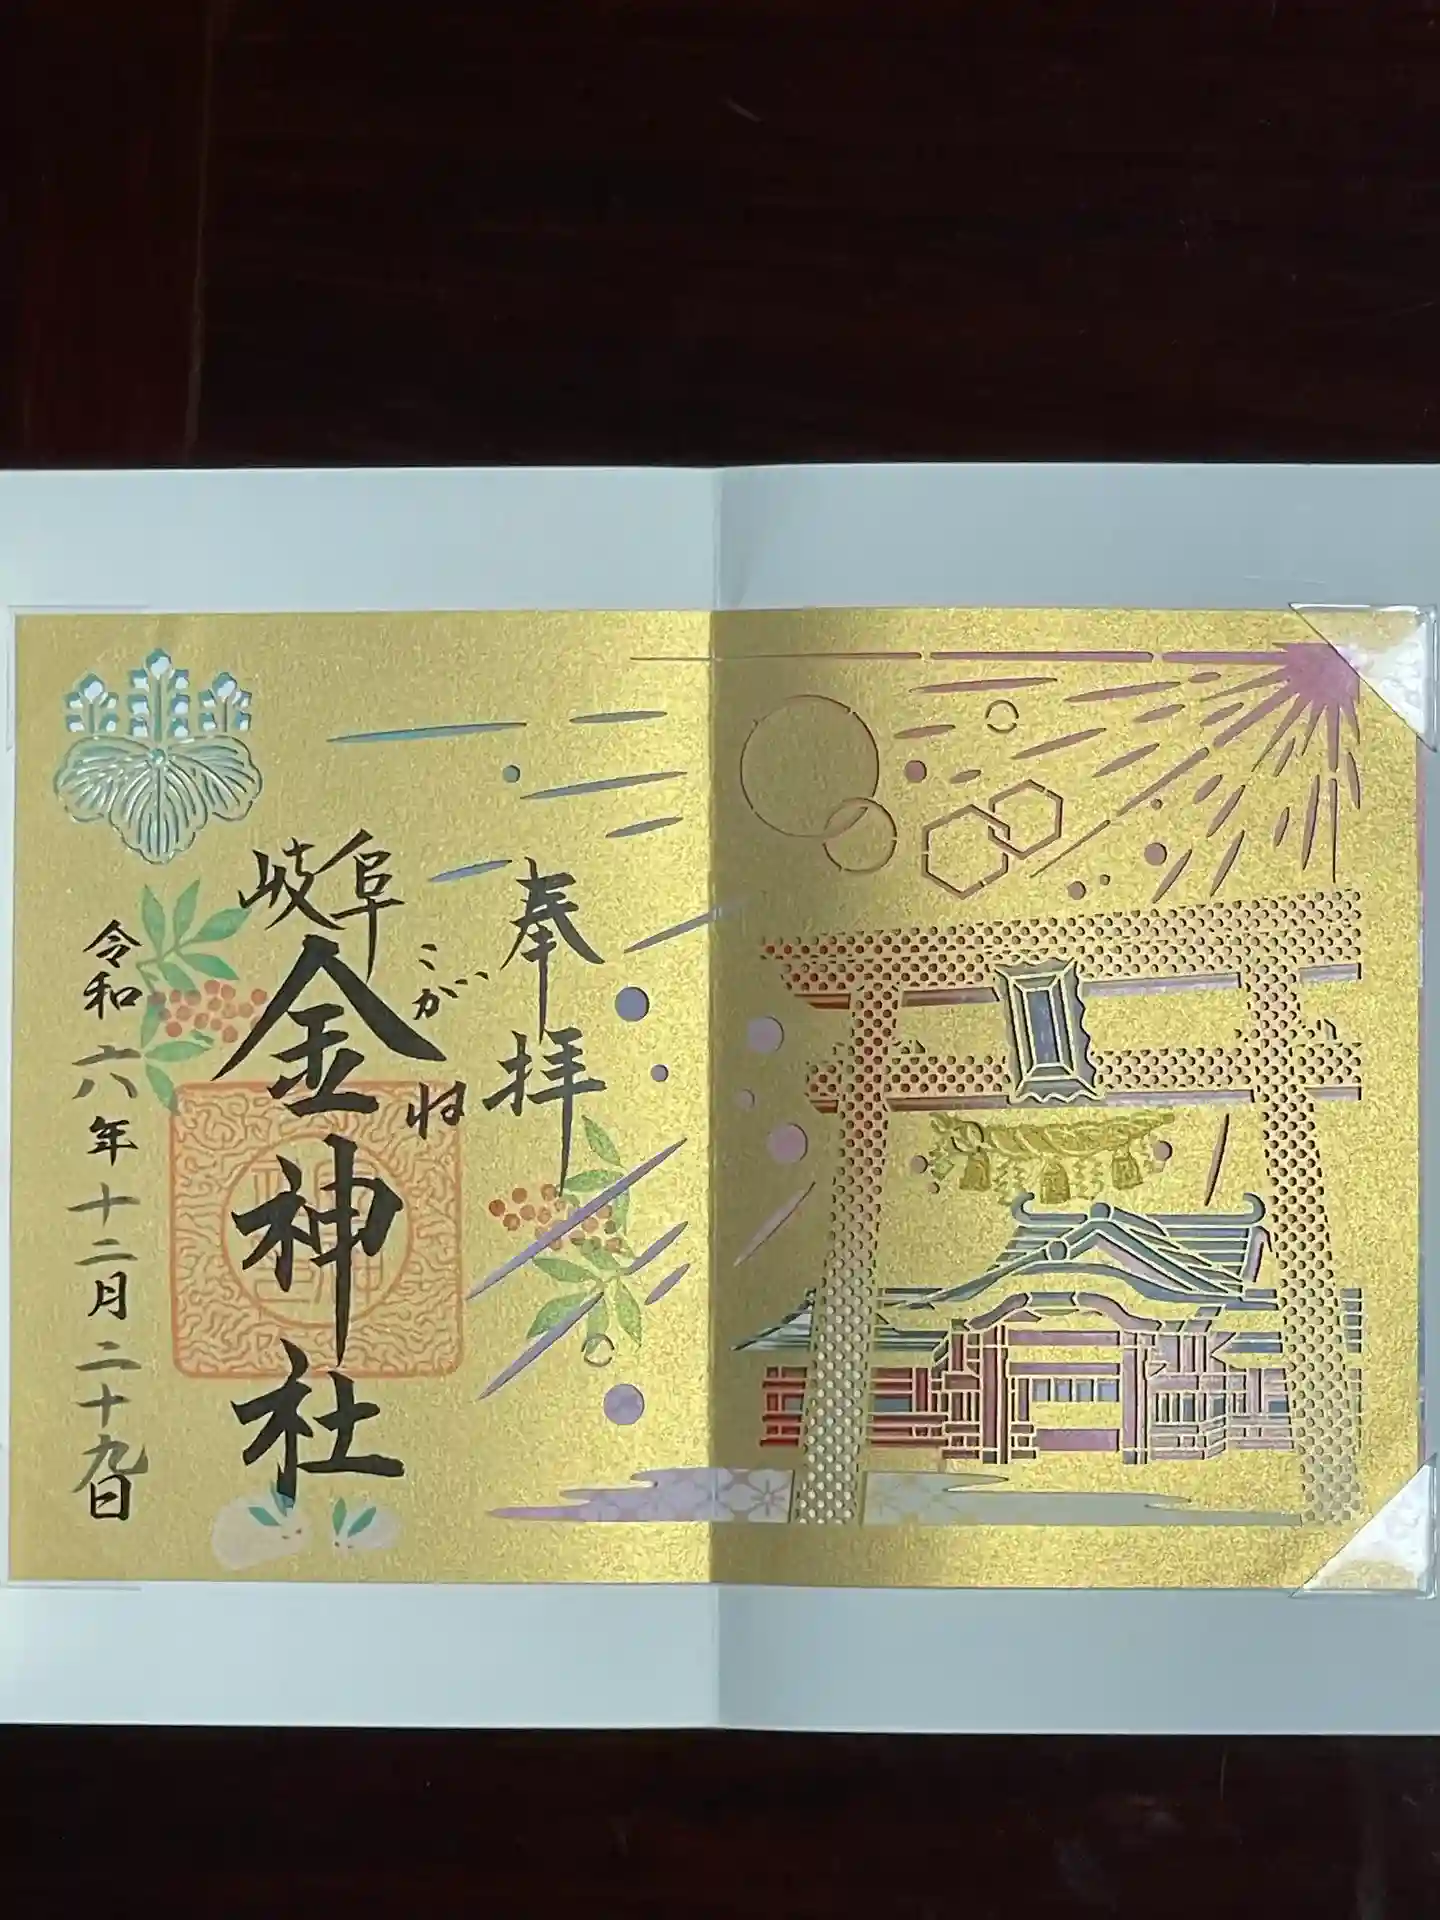 奉拝
こがね
岐阜
金神社
令和六年十二月二十九日